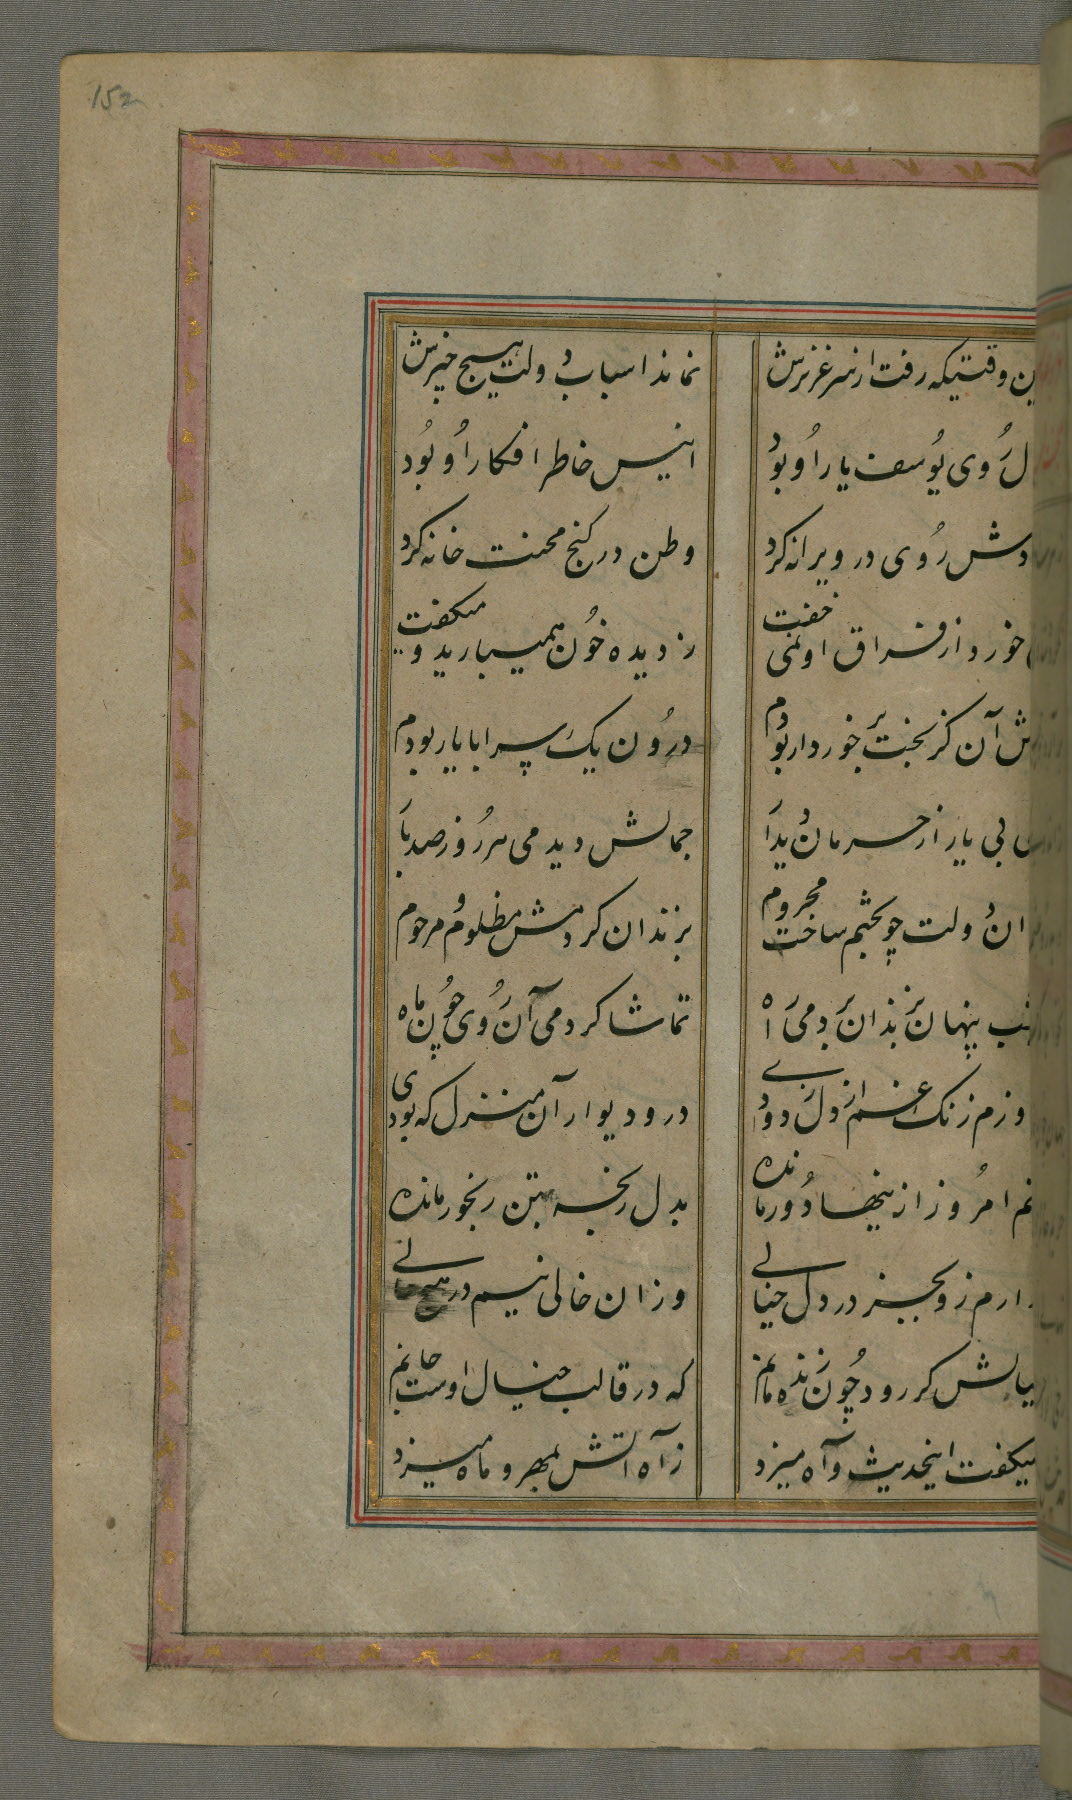 152
وقتیکه رفت از سر عزیزش نماند اسباب دولت هیچ چیزش
روی یوسف یار او بود انیس خاطر افکار او بود
روی در ویرانه کرد وطن در کنج محنت خانه کرد
خورد از فراق او نمی خفت ز دیده خون همیبارید و میگفت
آن کز بخت بر خوردار بودم درون یک سرا با یار بودم
بی یار از حرمان جمالش دیدمی هر روز صد بار
دولت چو بختم ساخت محروم بزندان کردمش مظلوم و مرحوم
پنهان بزندان بردمی راه تماشا کردمی آن روی چون ماه
زنگ غم از دل زدودی در و دیوار آن منزل که بودی
امروز از ینها دور مانده بدل رنجه بتن رنجور مانده
زو بجز در دل خیالی وزان خالی نیم در هیچ حالی
گر رود چون زنده مانم که در قالب خیال اوست جانم
میگفت اینحدیث و آه میزد ز آه آتش بمهر و ماه میزد